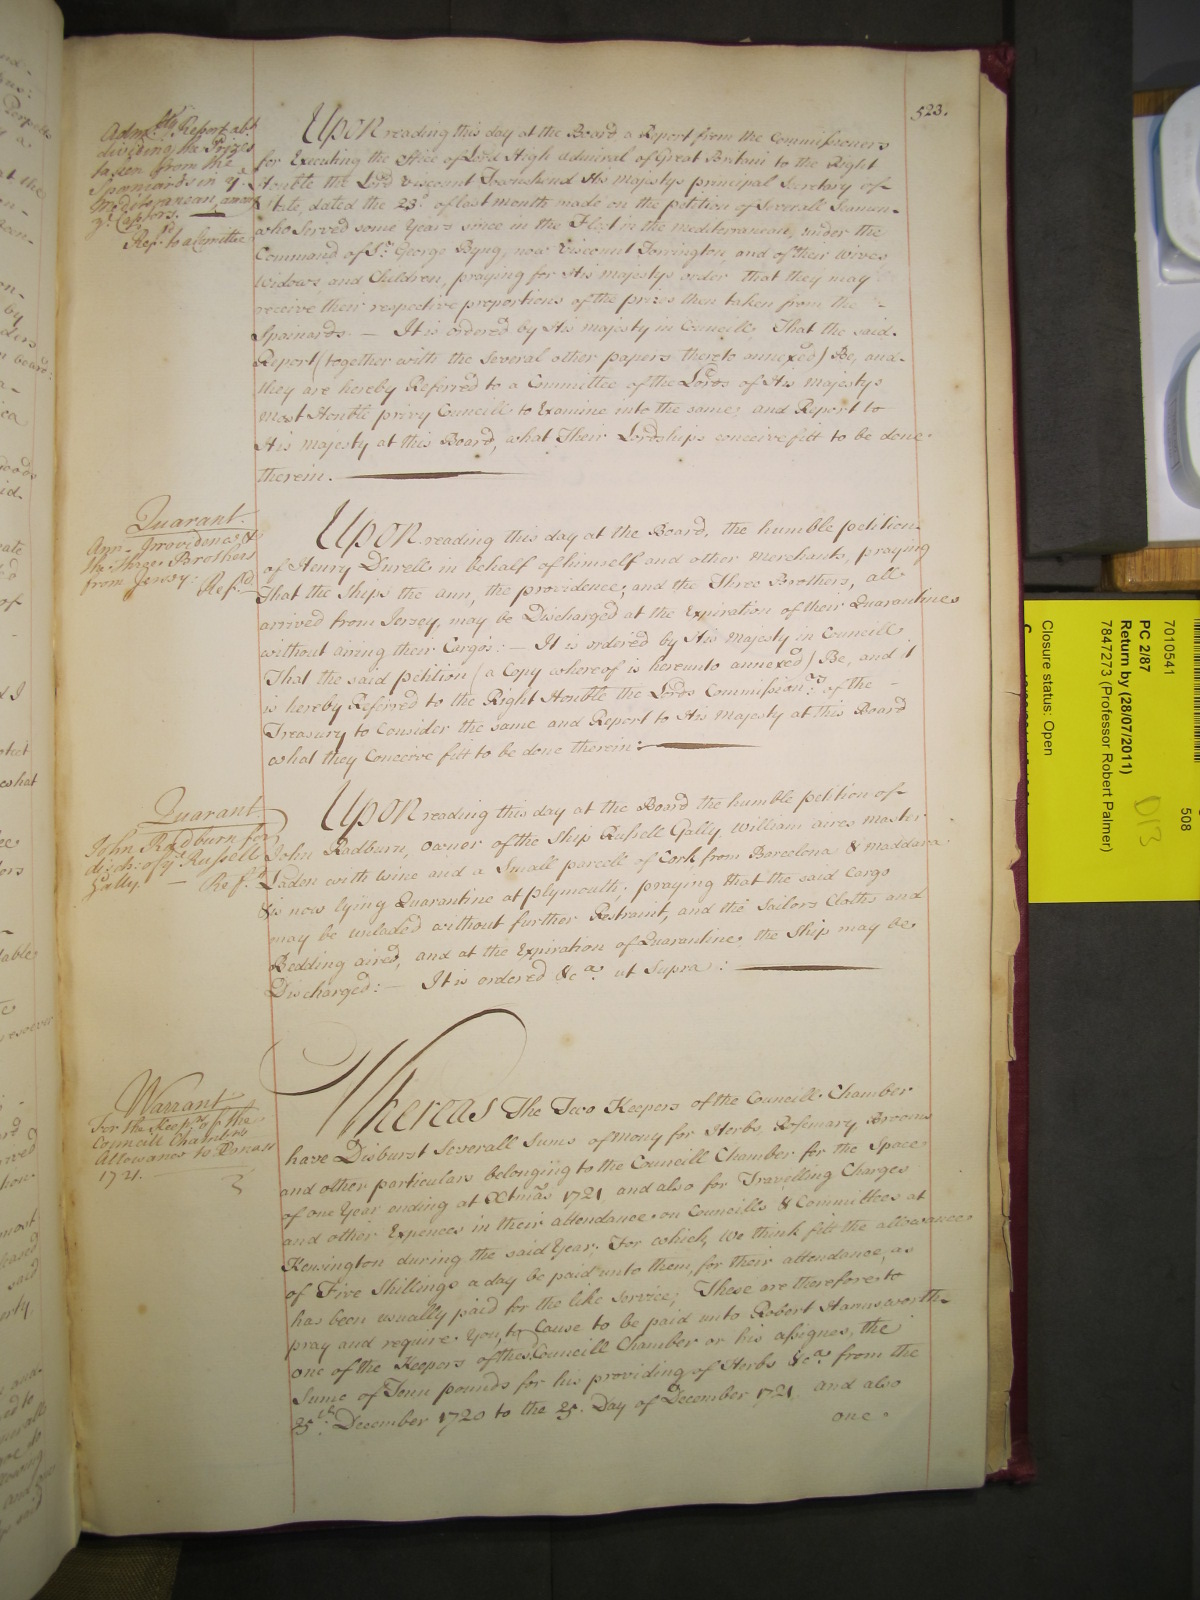 523.
Adm.lty Report abt.
dividing the Prizes
taken from the
Spaniards in ye.
Mediteranean, among
ye. Captors. —
Ref.d to a Comittee
Upon reading this day at the Board a Report from the Commissioners
for Executing the Office of Lord High Admiral of Great Britain to the Right
Honble the Lord Viscount Townshend His Majestys principal Secretary of
State, dated the 23d. of last month made on the petition of Severall Seamen
who Served some Years since in the Fleet in the Mediterranean, under the
Command of Sr. George Byng, now Viscount Torrington, and of their Wives
Widows and Children, praying for His Majestys order that they may
receive their respective proportions of the prizes then taken from the -
Spainards. — It is ordered by His Majesty in Councill, That the said
Report (together with the Several other papers thereto annexed) Be, and
they are hereby Referred to a Committee of the Lords of His Majestys
most Honble privy Councill to Examine into the same, and Report to
His Majesty at this Board, what Their Lordships conceive fitt to be done
therein.
Quarant.
Ann, Providence &
the three Brothers
from Jersey. Ref.d
Upon reading this day at the Board, the humble petition
of Henry Durell in behalf of himself and other Merchants, praying
That the Ships the Ann, the providence, and the Three Brothers, all
arrived from Jersey, may be Discharged at the Expiration of their Quarantines
without airing their Cargos: — It is ordered by His Majesty in Councill
That the said petition (a Copy whereof is hereunto annexed) Be, and it
is hereby Referred to the Right Honble the Lords Commission.rs of the -
Treasury to Consider the same and Report to His Majesty at this Board
what they Conceive fitt to be done therein:
Quarant.
John Radburn for
disch: of ye. Russell
Gally. — Ref.d
Upon reading this day at the Board the humble petition of
John Radburn, owner of the Ship Russell Gally, William Aires Master
Laden with wine and a Small parcell of Cork from Barcelona & Maddara
& is now lying Quarantine at plymouth, praying that the said Cargo
may be unladed without further Restraint, and the Sailors Cloths and
Bedding aired, and at the Expiration of Quarantine, the Ship may be
Discharged: — It is ordered &ca. ut Supra:
Warrant
For the Keep.rs of the
Councill Chambers
Allowance to Xmass
1721.
Whereas The Two Keepers of the Councill Chamber
have Disburst Severall Sums of Mony for Herbs, Rosemary Brooms
and other particulars belonging to the Councill Chamber for the Space
of one Year ending at Xtmas 1721, and also for Travelling Charges
and other Expences in their attendance on Councills & Committees at
Kensington during the said Year; For which, We think fitt the allowance
of Five Shillings a day be paid unto them, for their attendance, as
has been usually paid for the like Service; These are therefore to
pray and require You, to Cause to be paid unto Robert Harnsworth
one of the Keepers of the Councill Chamber or his assignes, the
Sume of Tenn pounds for his providing of Herbs &ca. from the
25th. December 1720 to the 25. Day of December 1721 and also
one
7010541
508
PC 2/87
Return by (28/07/2011)
7847273 (Professor Robert Palmer)
D13
Closure status: Open